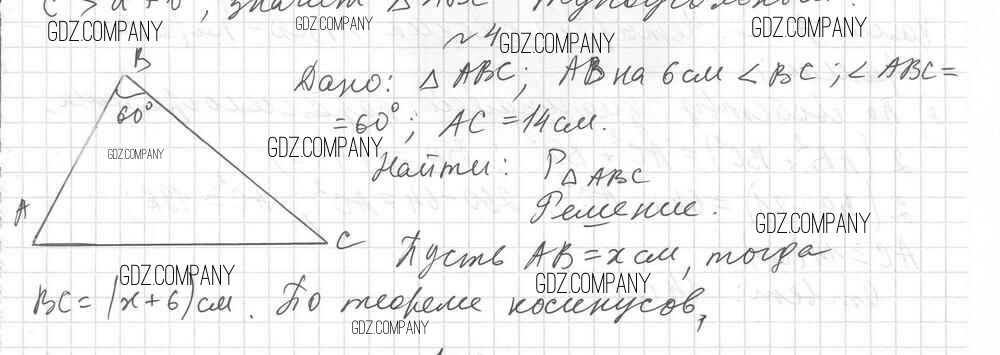 GDZ.COMPANY GDZ.COMPANY GDZ.COMPANY
№ 4 GDZ.COMPANY
B
60°
Дано: △ ABC; AB на 6 см < BC; ∠ ABC =
= 60°; AC = 14 см.
GDZ.COMPANY GDZ.COMPANY
Найти: P△ABC
Решение.
A
C
GDZ.COMPANY
Пусть AB = x см, тогда
GDZ.COMPANY GDZ.COMPANY
BC = (x + 6) см. По теореме косинусов,
GDZ.COMPANY